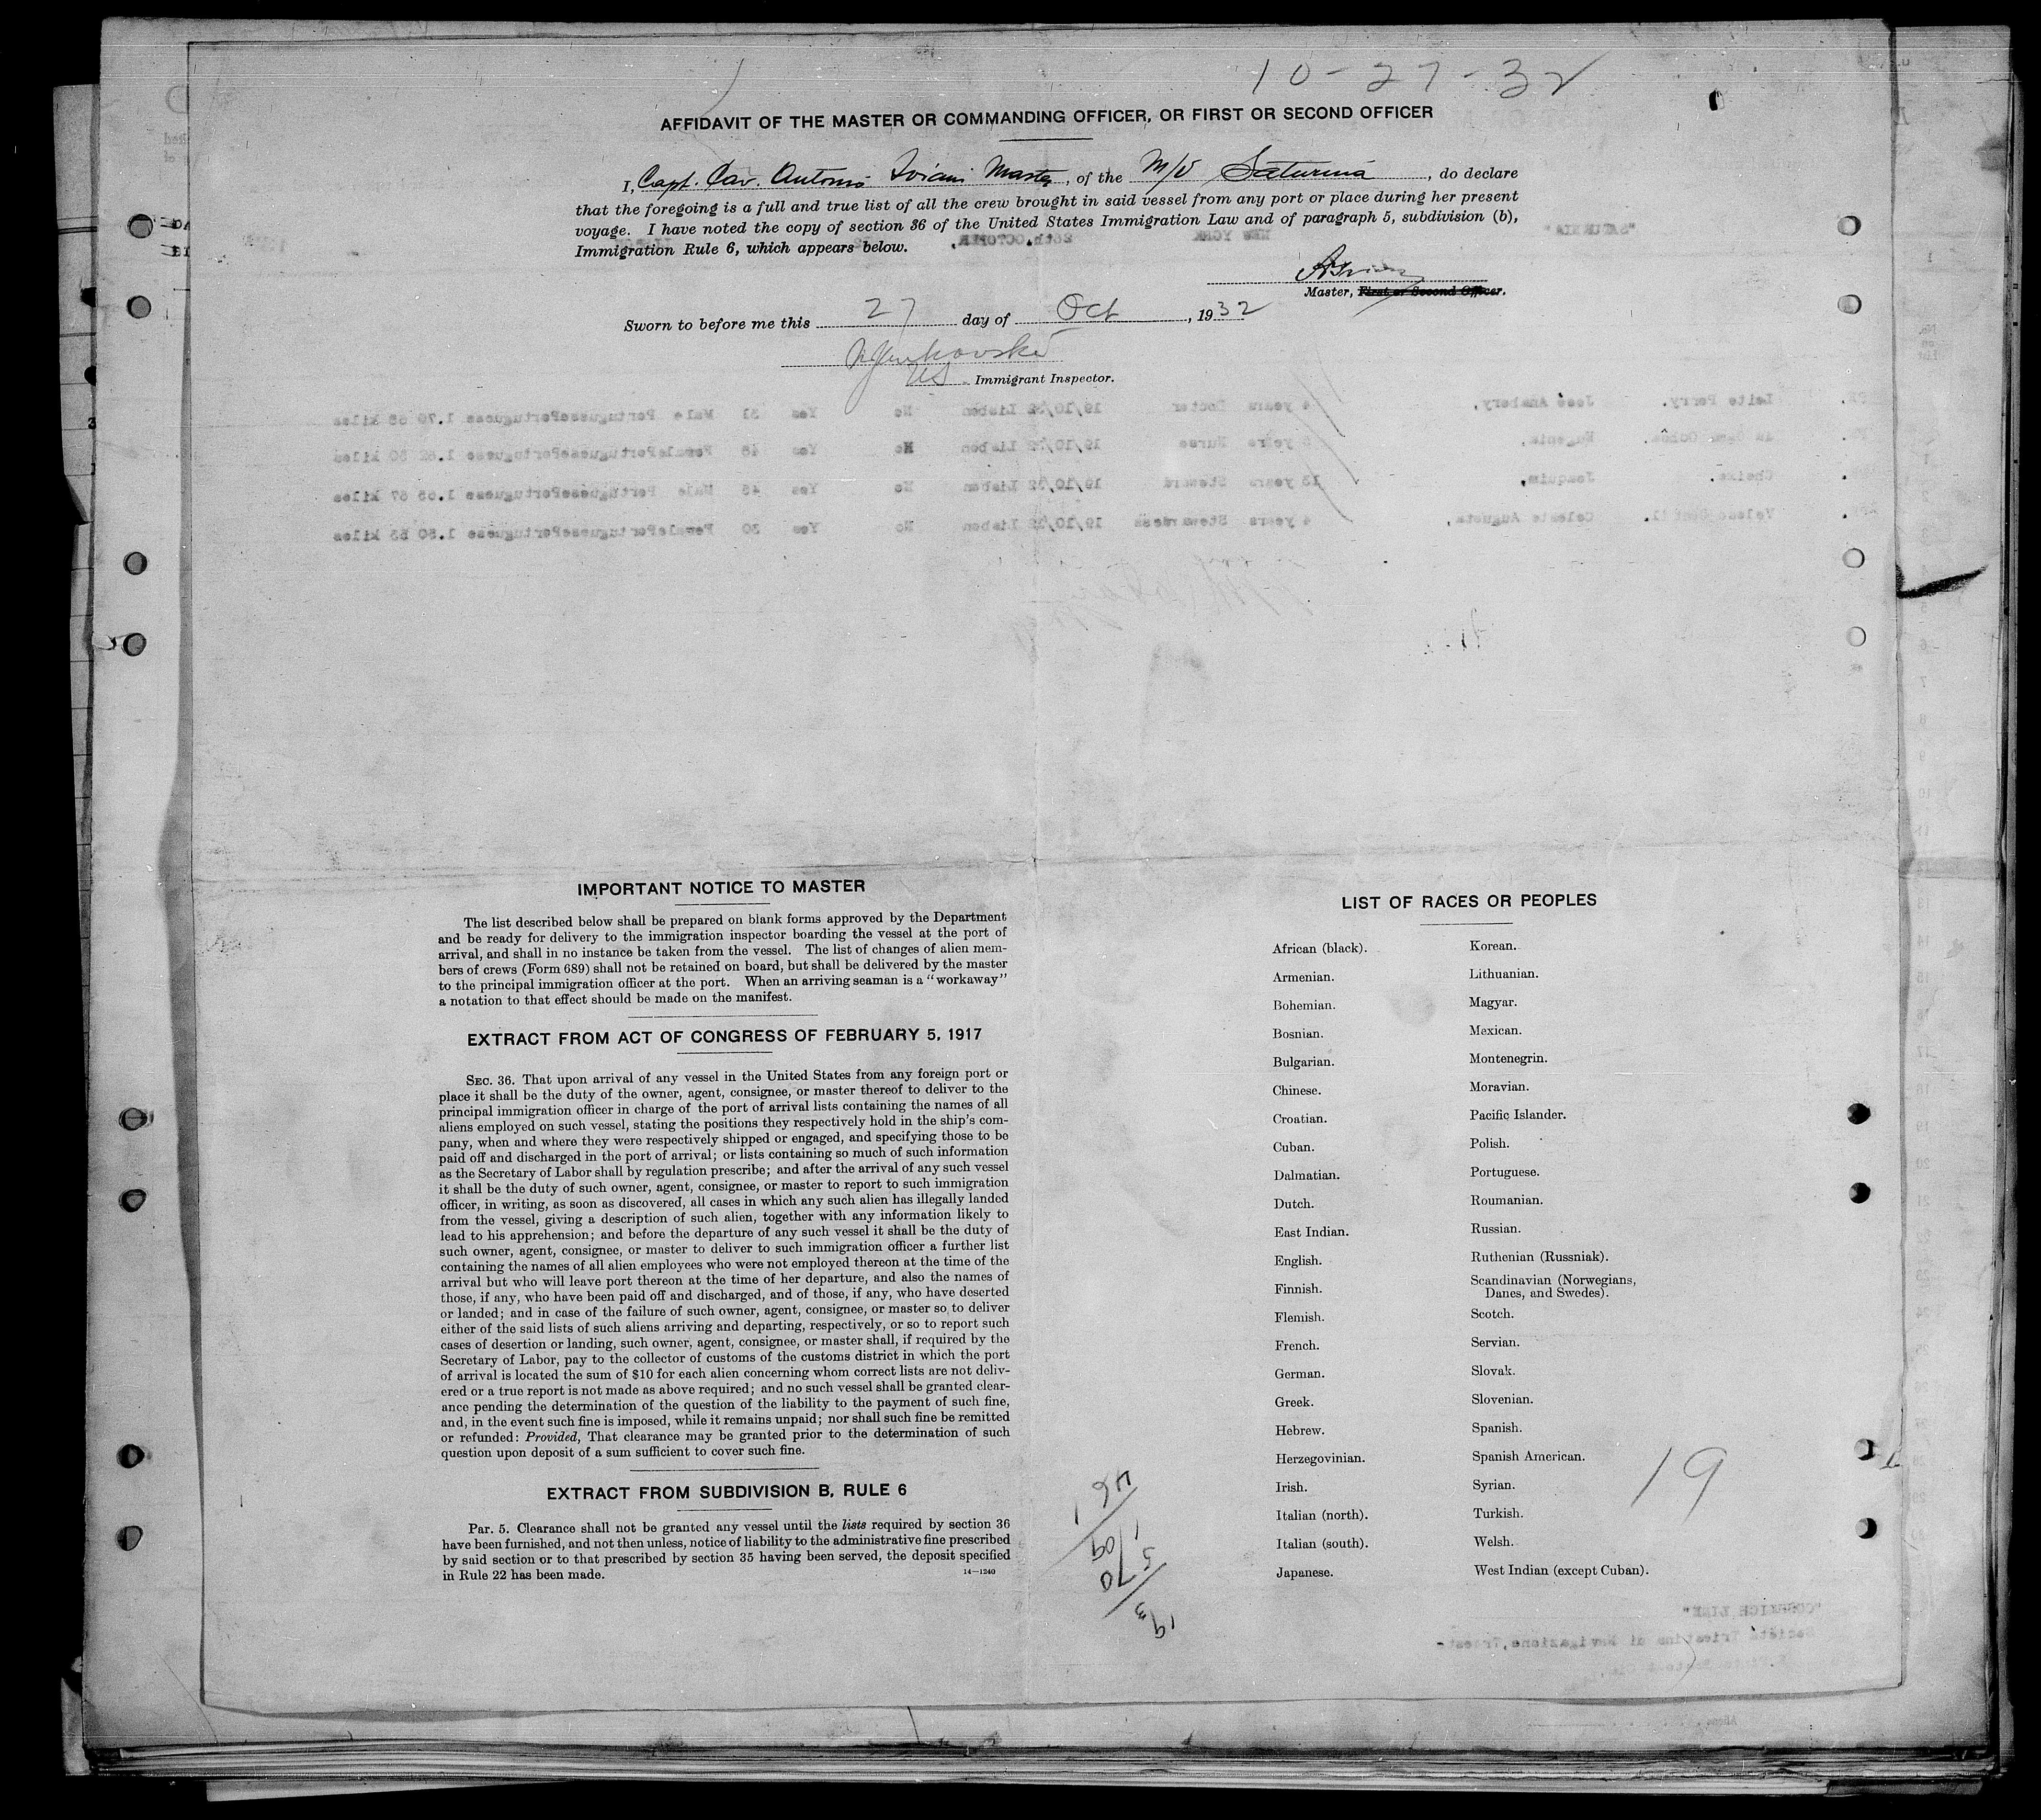 10-27-32
AFFIDAVIT OF THE MASTER OR COMMANDING OFFICER, OR FIRST OR SECOND OFFICER
I, Capt. Cav. Antonio Iviani Master, of the M/V Saturnia, do declare
that the foregoing is a full and true list of all the crew brought in said vessel from any port or place during her present
voyage. I have noted the copy of section 36 of the United States Immigration Law and of paragraph 5, subdivision (b),
Immigration Rule 6, which appears below.
Master, First or Second Officer.
Sworn to before me this 27 day of Oct, 1932
US Immigrant Inspector.
IMPORTANT NOTICE TO MASTER
The list described below shall be prepared on blank forms approved by the Department
and be ready for delivery to the immigration inspector boarding the vessel at the port of
arrival, and shall in no instance be taken from the vessel. The list of changes of alien mem-
bers of crews (Form 689) shall not be retained on board, but shall be delivered by the master
to the principal immigration officer at the port. When an arriving seaman is a "workaway"
a notation to that effect should be made on the manifest.
EXTRACT FROM ACT OF CONGRESS OF FEBRUARY 5, 1917
SEC. 36. That upon arrival of any vessel in the United States from any foreign port or
place it shall be the duty of the owner, agent, consignee, or master thereof to deliver to the
principal immigration officer in charge of the port of arrival lists containing the names of all
aliens employed on such vessel, stating the positions they respectively hold in the ship's com-
pany, when and where they were respectively shipped or engaged, and specifying those to be
paid off and discharged in the port of arrival; or lists containing so much of such information
as the Secretary of Labor shall by regulation prescribe; and after the arrival of any such vessel
it shall be the duty of such owner, agent, consignee, or master to report to such immigration
officer, in writing, as soon as discovered, all cases in which any such alien has illegally landed
from the vessel, giving a description of such alien, together with any information likely to
lead to his apprehension; and before the departure of any such vessel it shall be the duty of
such owner, agent, consignee, or master to deliver to such immigration officer a further list
containing the names of all alien employees who were not employed thereon at the time of the
arrival but who will leave port thereon at the time of her departure, and also the names of
those, if any, who have been paid off and discharged, and of those, if any, who have deserted
or landed; and in case of the failure of such owner, agent, consignee, or master so to deliver
either of the said lists of such aliens arriving and departing, respectively, or so to report such
cases of desertion or landing, such owner, agent, consignee, or master shall, if required by the
Secretary of Labor, pay to the collector of customs of the customs district in which the port
of arrival is located the sum of $10 for each alien concerning whom correct lists are not deliv-
ered or a true report is not made as above required; and no such vessel shall be granted clear-
ance pending the determination of the question of the liability to the payment of such fine,
and, in the event such fine is imposed, while it remains unpaid; nor shall such fine be remitted
or refunded: Provided, That clearance may be granted prior to the determination of such
question upon deposit of a sum sufficient to cover such fine.
EXTRACT FROM SUBDIVISION B, RULE 6
Par. 5. Clearance shall not be granted any vessel until the lists required by section 36
have been furnished, and not then unless, notice of liability to the administrative fine prescribed
by said section or to that prescribed by section 35 having been served, the deposit specified
in Rule 22 has been made.
14—1240
LIST OF RACES OR PEOPLES
African (black).
Armenian.
Bohemian.
Bosnian.
Bulgarian.
Chinese.
Croatian.
Cuban.
Dalmatian.
Dutch.
East Indian.
English.
Finnish.
Flemish.
French.
German.
Greek.
Hebrew.
Herzegovinian.
Irish.
Italian (north).
Italian (south).
Japanese.
Korean.
Lithuanian.
Magyar.
Mexican.
Montenegrin.
Moravian.
Pacific Islander.
Polish.
Portuguese.
Roumanian.
Russian.
Ruthenian (Russniak).
Scandinavian (Norwegians,
Danes, and Swedes).
Scotch.
Servian.
Slovak.
Slovenian.
Spanish.
Spanish American.
Syrian.
Turkish.
Welsh.
West Indian (except Cuban).
19